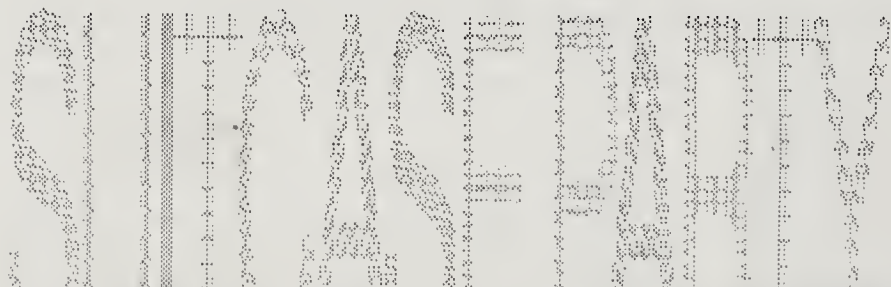 SUITCASE PARTY